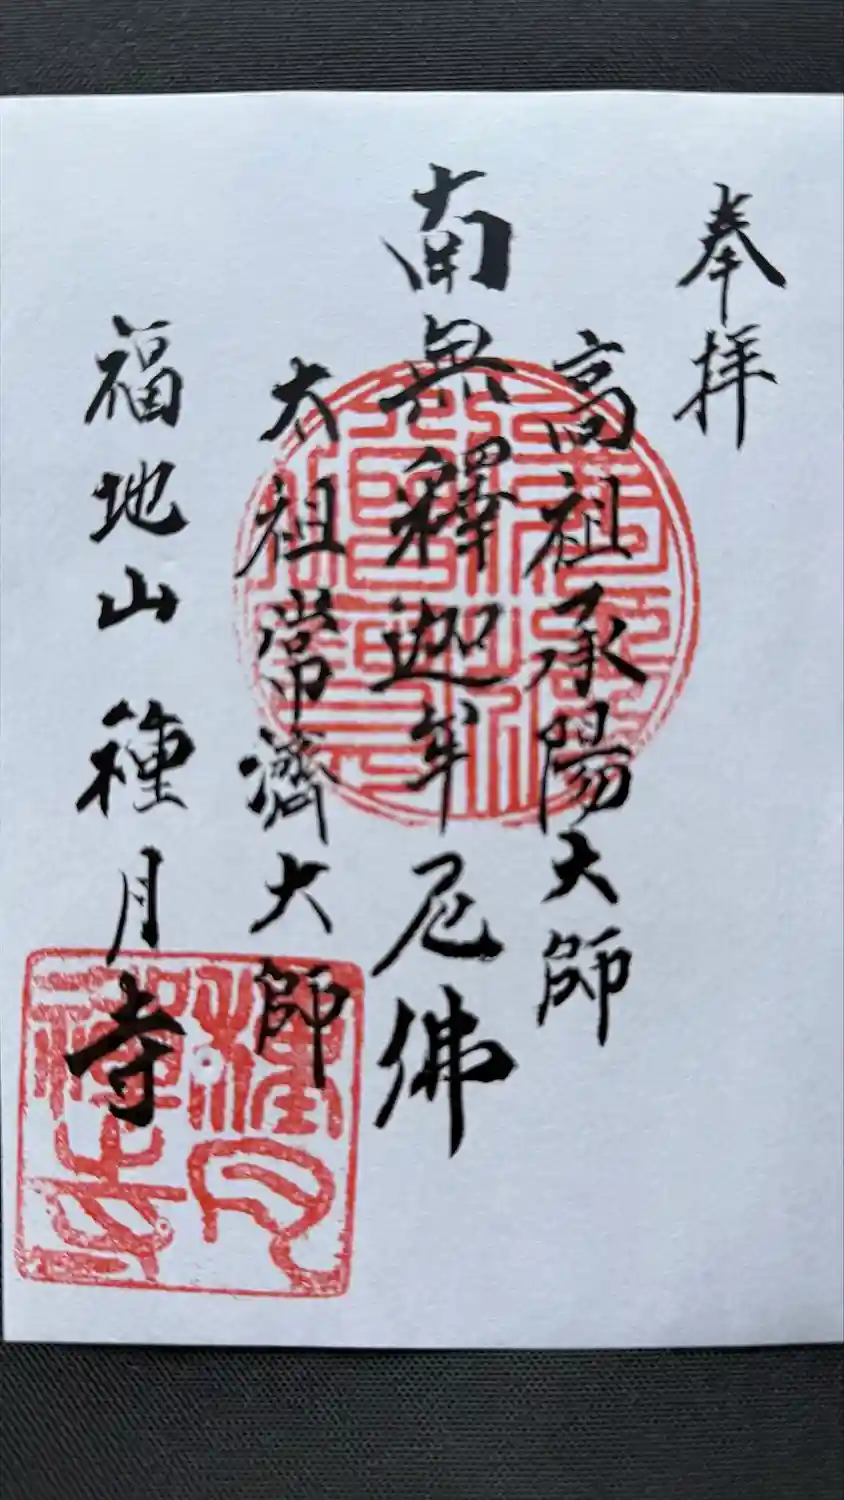 奉拝
高祖承陽大師
南無釋迦牟尼佛
太祖常濟大師
福地山 種月寺
種月禅寺